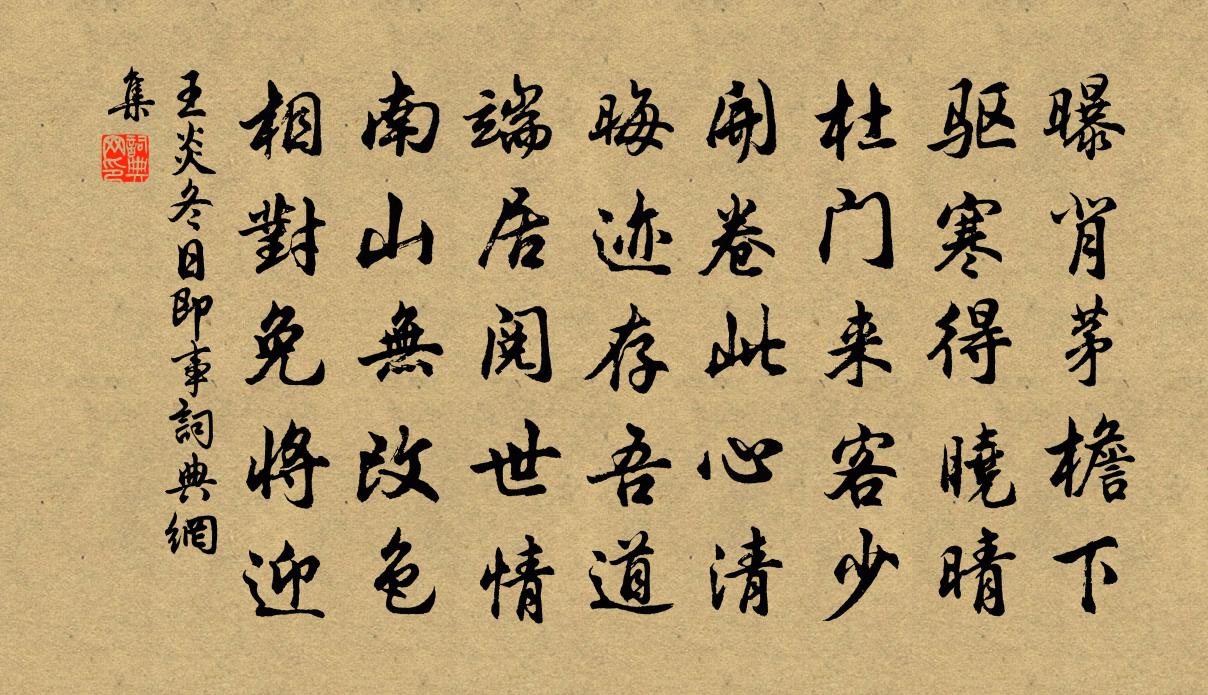 曝背茅檐下
驱寒得曉晴
杜门来客少
開卷此心清
晦迹存吾道
端居閲世情
南山無改色
相對免将迎
王炎冬日即事詞典網
集
詞典
网印